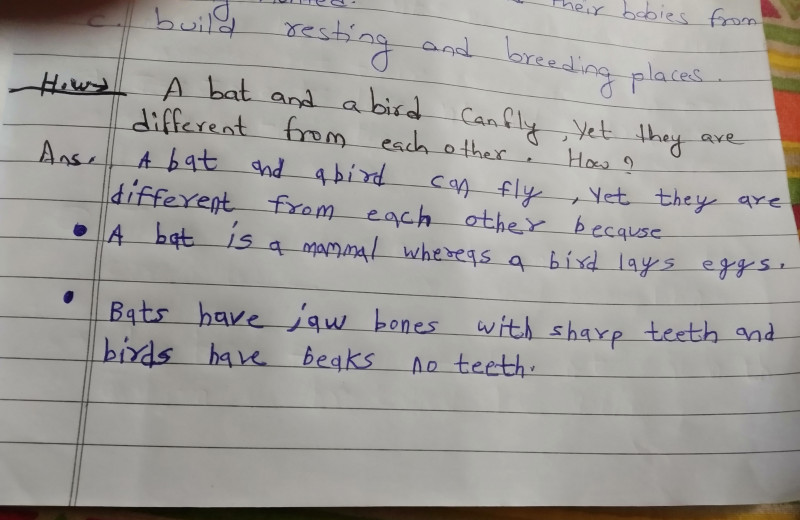 their babies from
c. build resting and breeding places.
How→ A bat and a bird Canfly, Yet they are
different from each other. How?
Ans. A bat and a bird can fly, Yet they are
different from each other because
• A bat is a mammal whereas a bird lays eggs.
• Bats have jaw bones with sharp teeth and
birds have beaks no teeth.